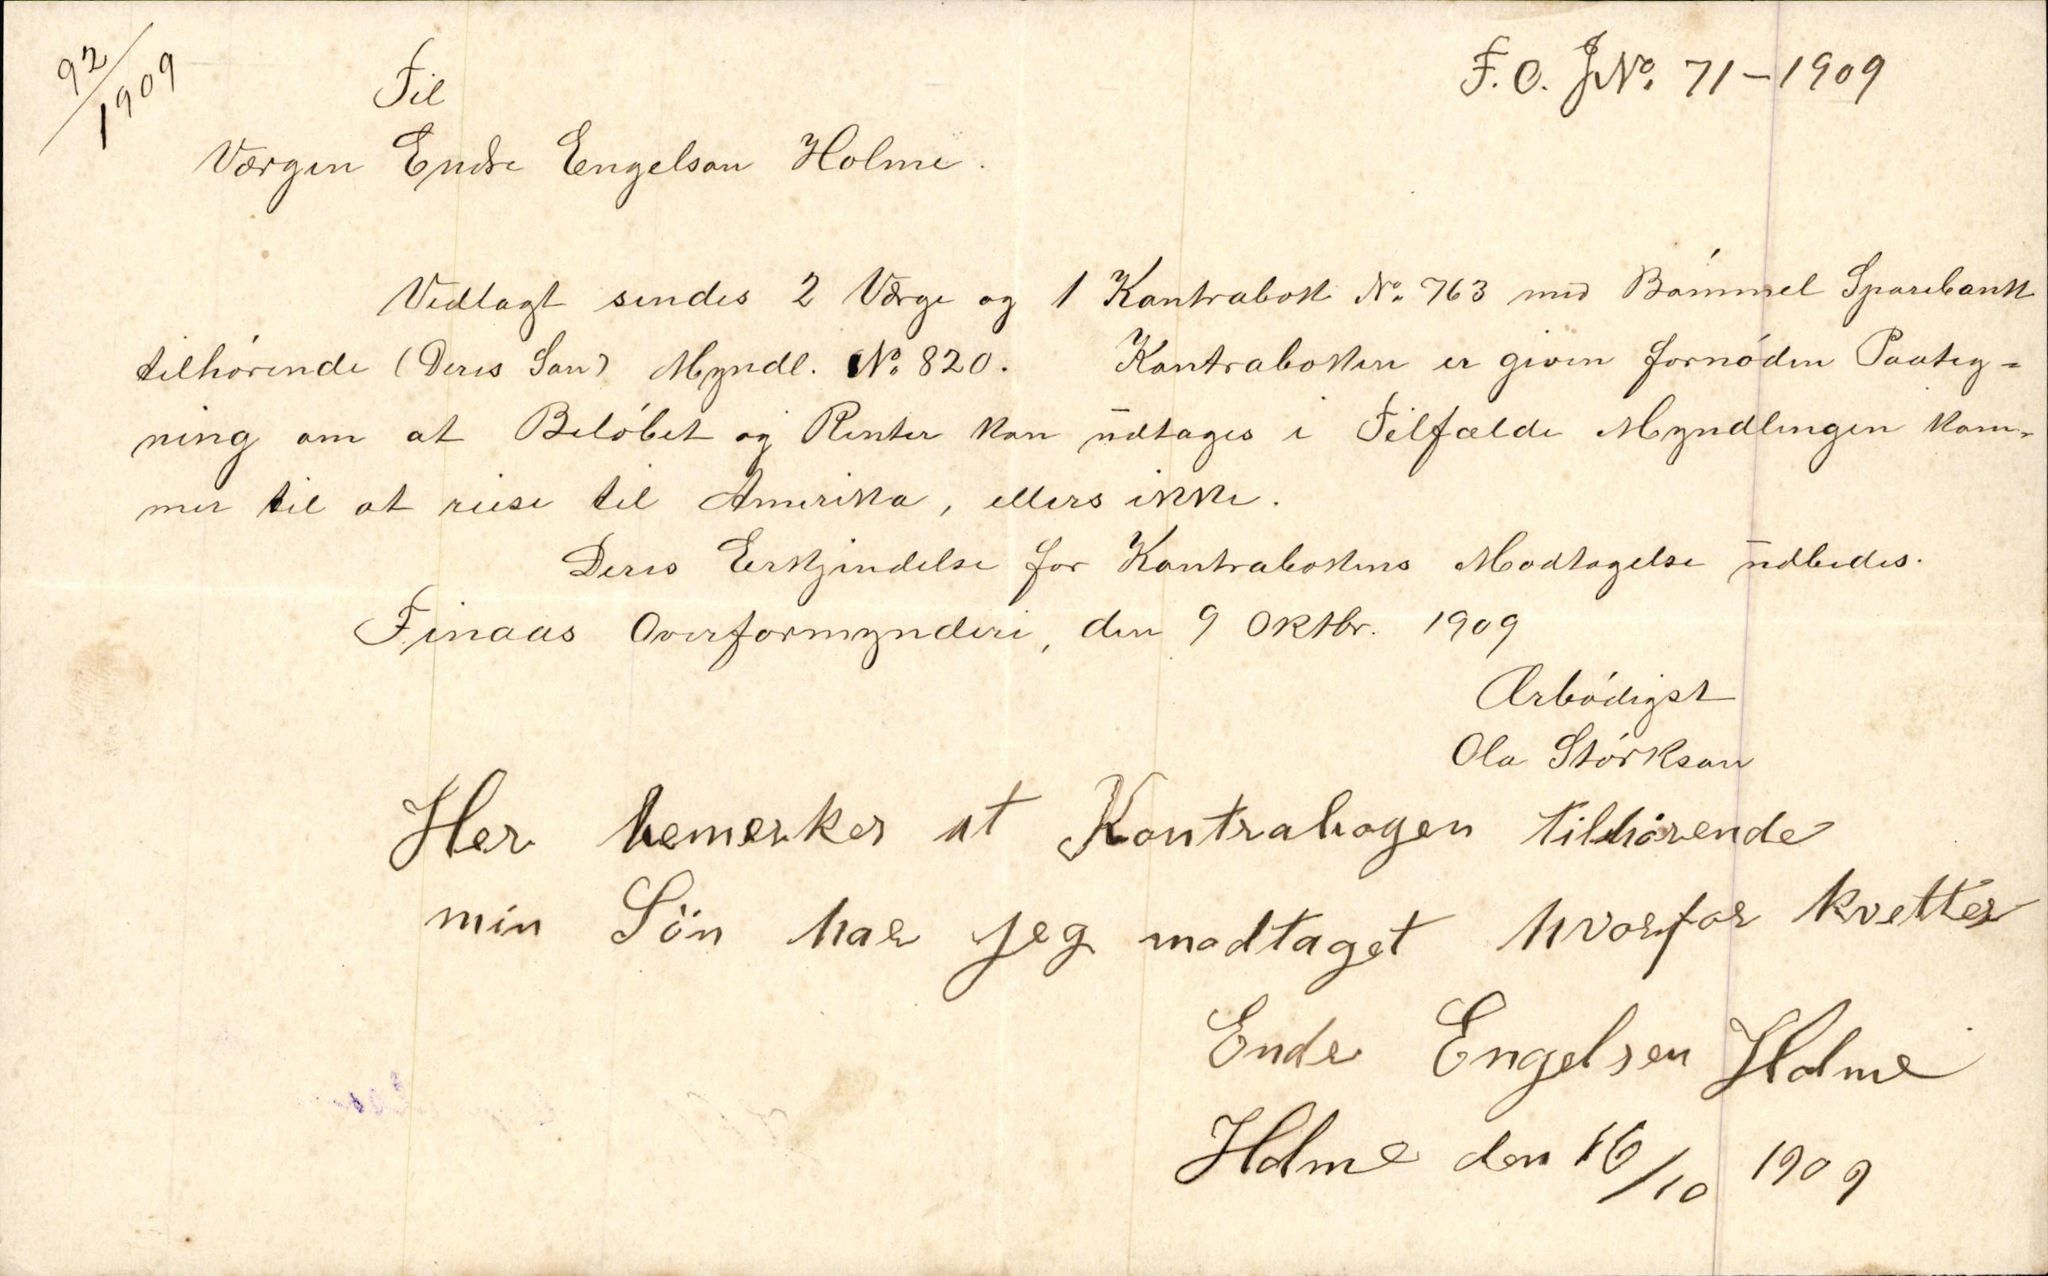 92/1909
F. O. JNo. 71-1909
Til
Værgen Endre Engelson Holme.
Vedlagt sendes 2 Værge og 1 Kontrabok No. 763 med Bømmel Sparebank
tilhørende (Deres Søn) Myndl. No. 820. Kontraboken er given fornøden Paateg-
ning om at Beløbet og Renter kan udtages i Tilfælde Myndlingen kom-
mer til at reise til Amerika, ellers ikke.
Deres Erkjendelse for Kontrabokens Modtagelse udbedes.
Finaas Overformynderi, den 9 Oktbr. 1909
Ærbødigst
Ola Størkson
Her bemerker at Kontrabogen tilhørende
min Sön har jeg modtaget hvorfor kvetter
Ende Engelsen Holme
Holme den 16/10 1909